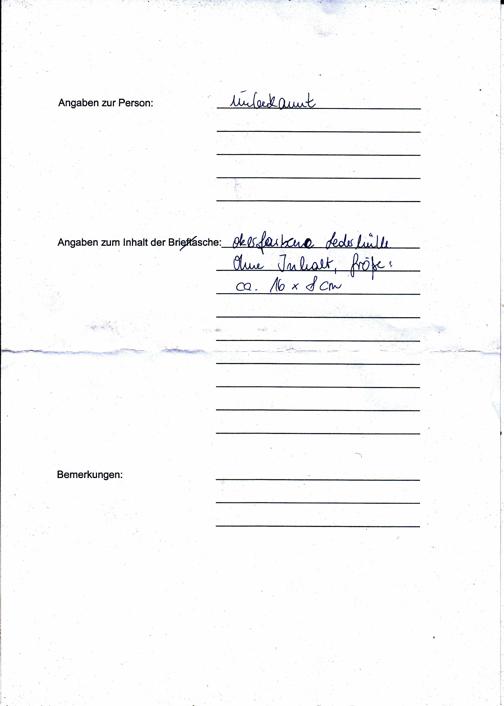 Angaben zur Person: Unbekannt
Angaben zum Inhalt der Brieftasche: okerfarbene Lederhülle
Ohne Inhalt, Größe:
ca. 16 x 8 cm
Bemerkungen: